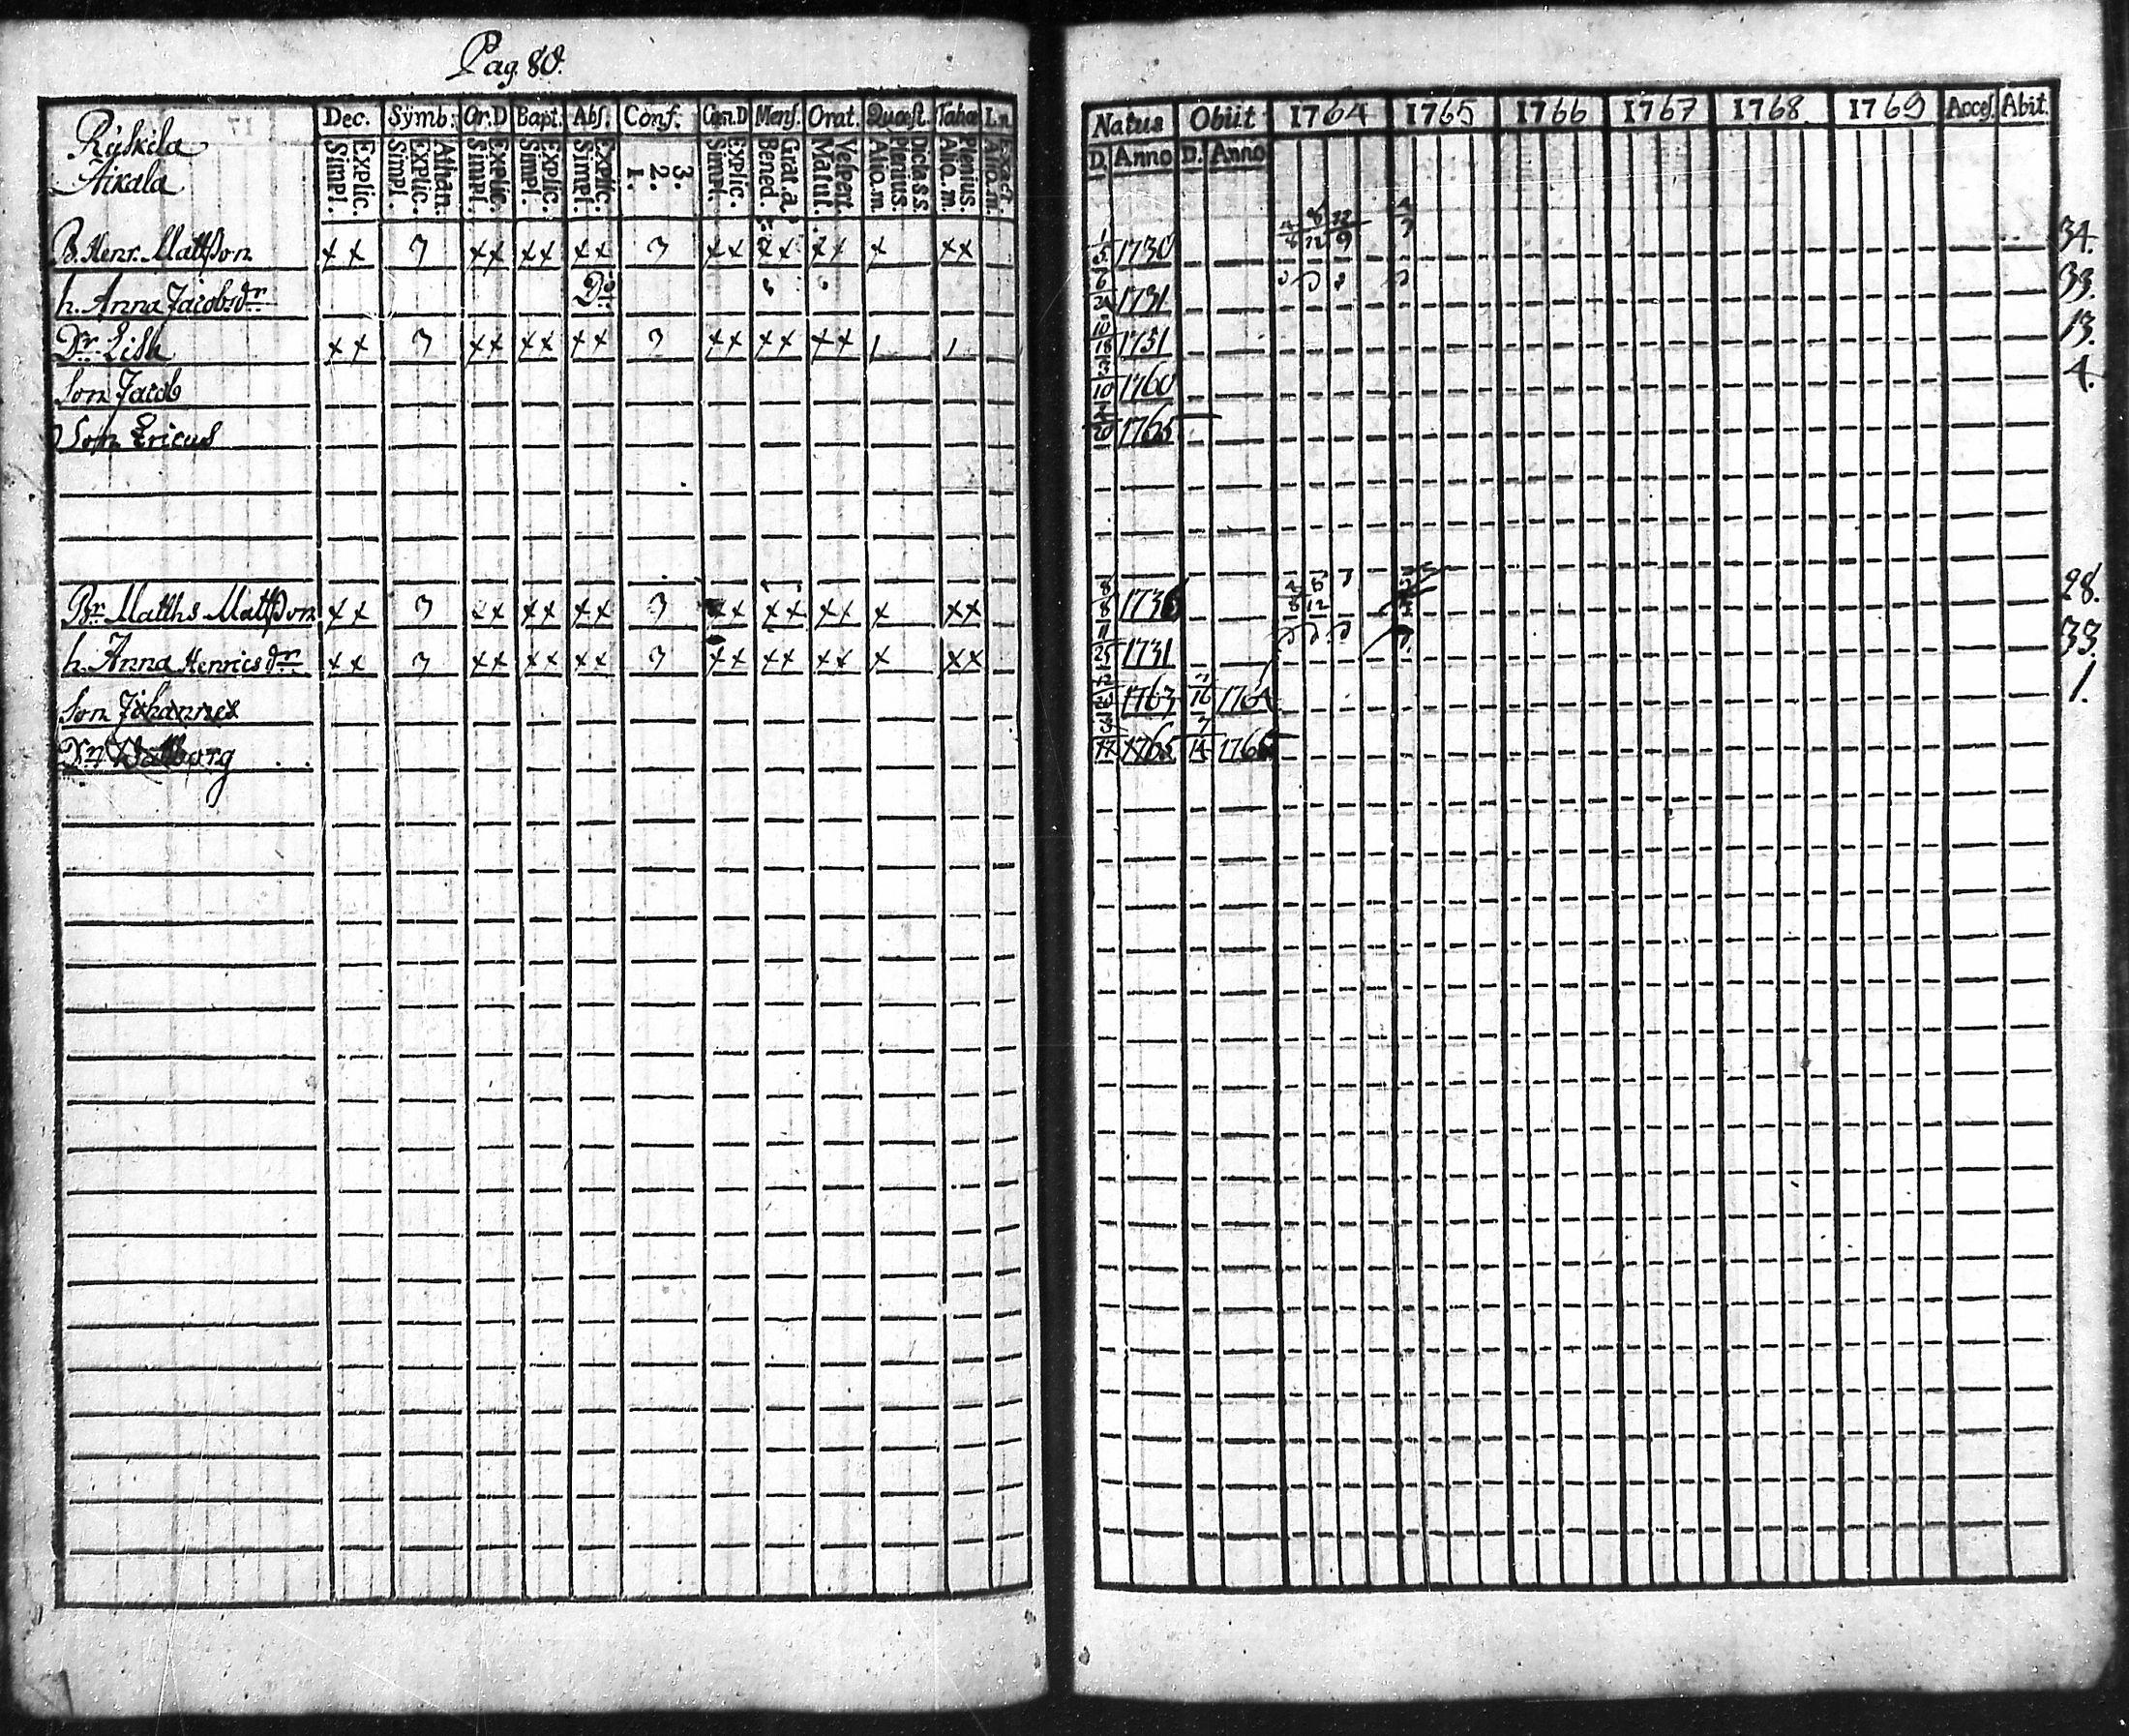 Pag. 80.
Rijskila
Aikala
Dec. Symb. Or.D Bapt. Abs. Conf. Cœn.D Mens. Orat. Quæst. Tabœ
Simpl. Explic. Simpl. Explic. Athan. Simpl. Explic. Simpl. Explic. Simpl. Explic. 1. 2. 3. Simpl. Explic. Bened. Grat.a. Matut. Vespert. Alio.m Plenius. Dicta s s. Alio. m Plenius. Alio.m. Exact.
B. Henr. Mattsson ×× 3 ×× ×× ×× 3 ×× ×× ×× × ××
h. Anna Jacobsdr Do
Dr Lisa ×× 3 ×× ×× ×× 3 ×× ×× ×× 1 1
Son Jacob
Son Ericus
Br Matths Mattsson ×× 3 ×× ×× ×× 3 ×× ×× ×× × ××
h. Anna Henricsdr ×× 3 ×× ×× ×× 3 ×× ×× ×× × ××
Son Johannes
Dr Walborg
Natus Obiit 1764 1765 1766 1767 1768 1769 Acces. Abit.
D. Anno D. Anno
1/5 1730 34.
6/24 1731 33.
10/18 1751 13.
1760 4.
1765
8/8 1736 28.
11/25 1731 33.
1763 16 1764 1.
1765 14 1765